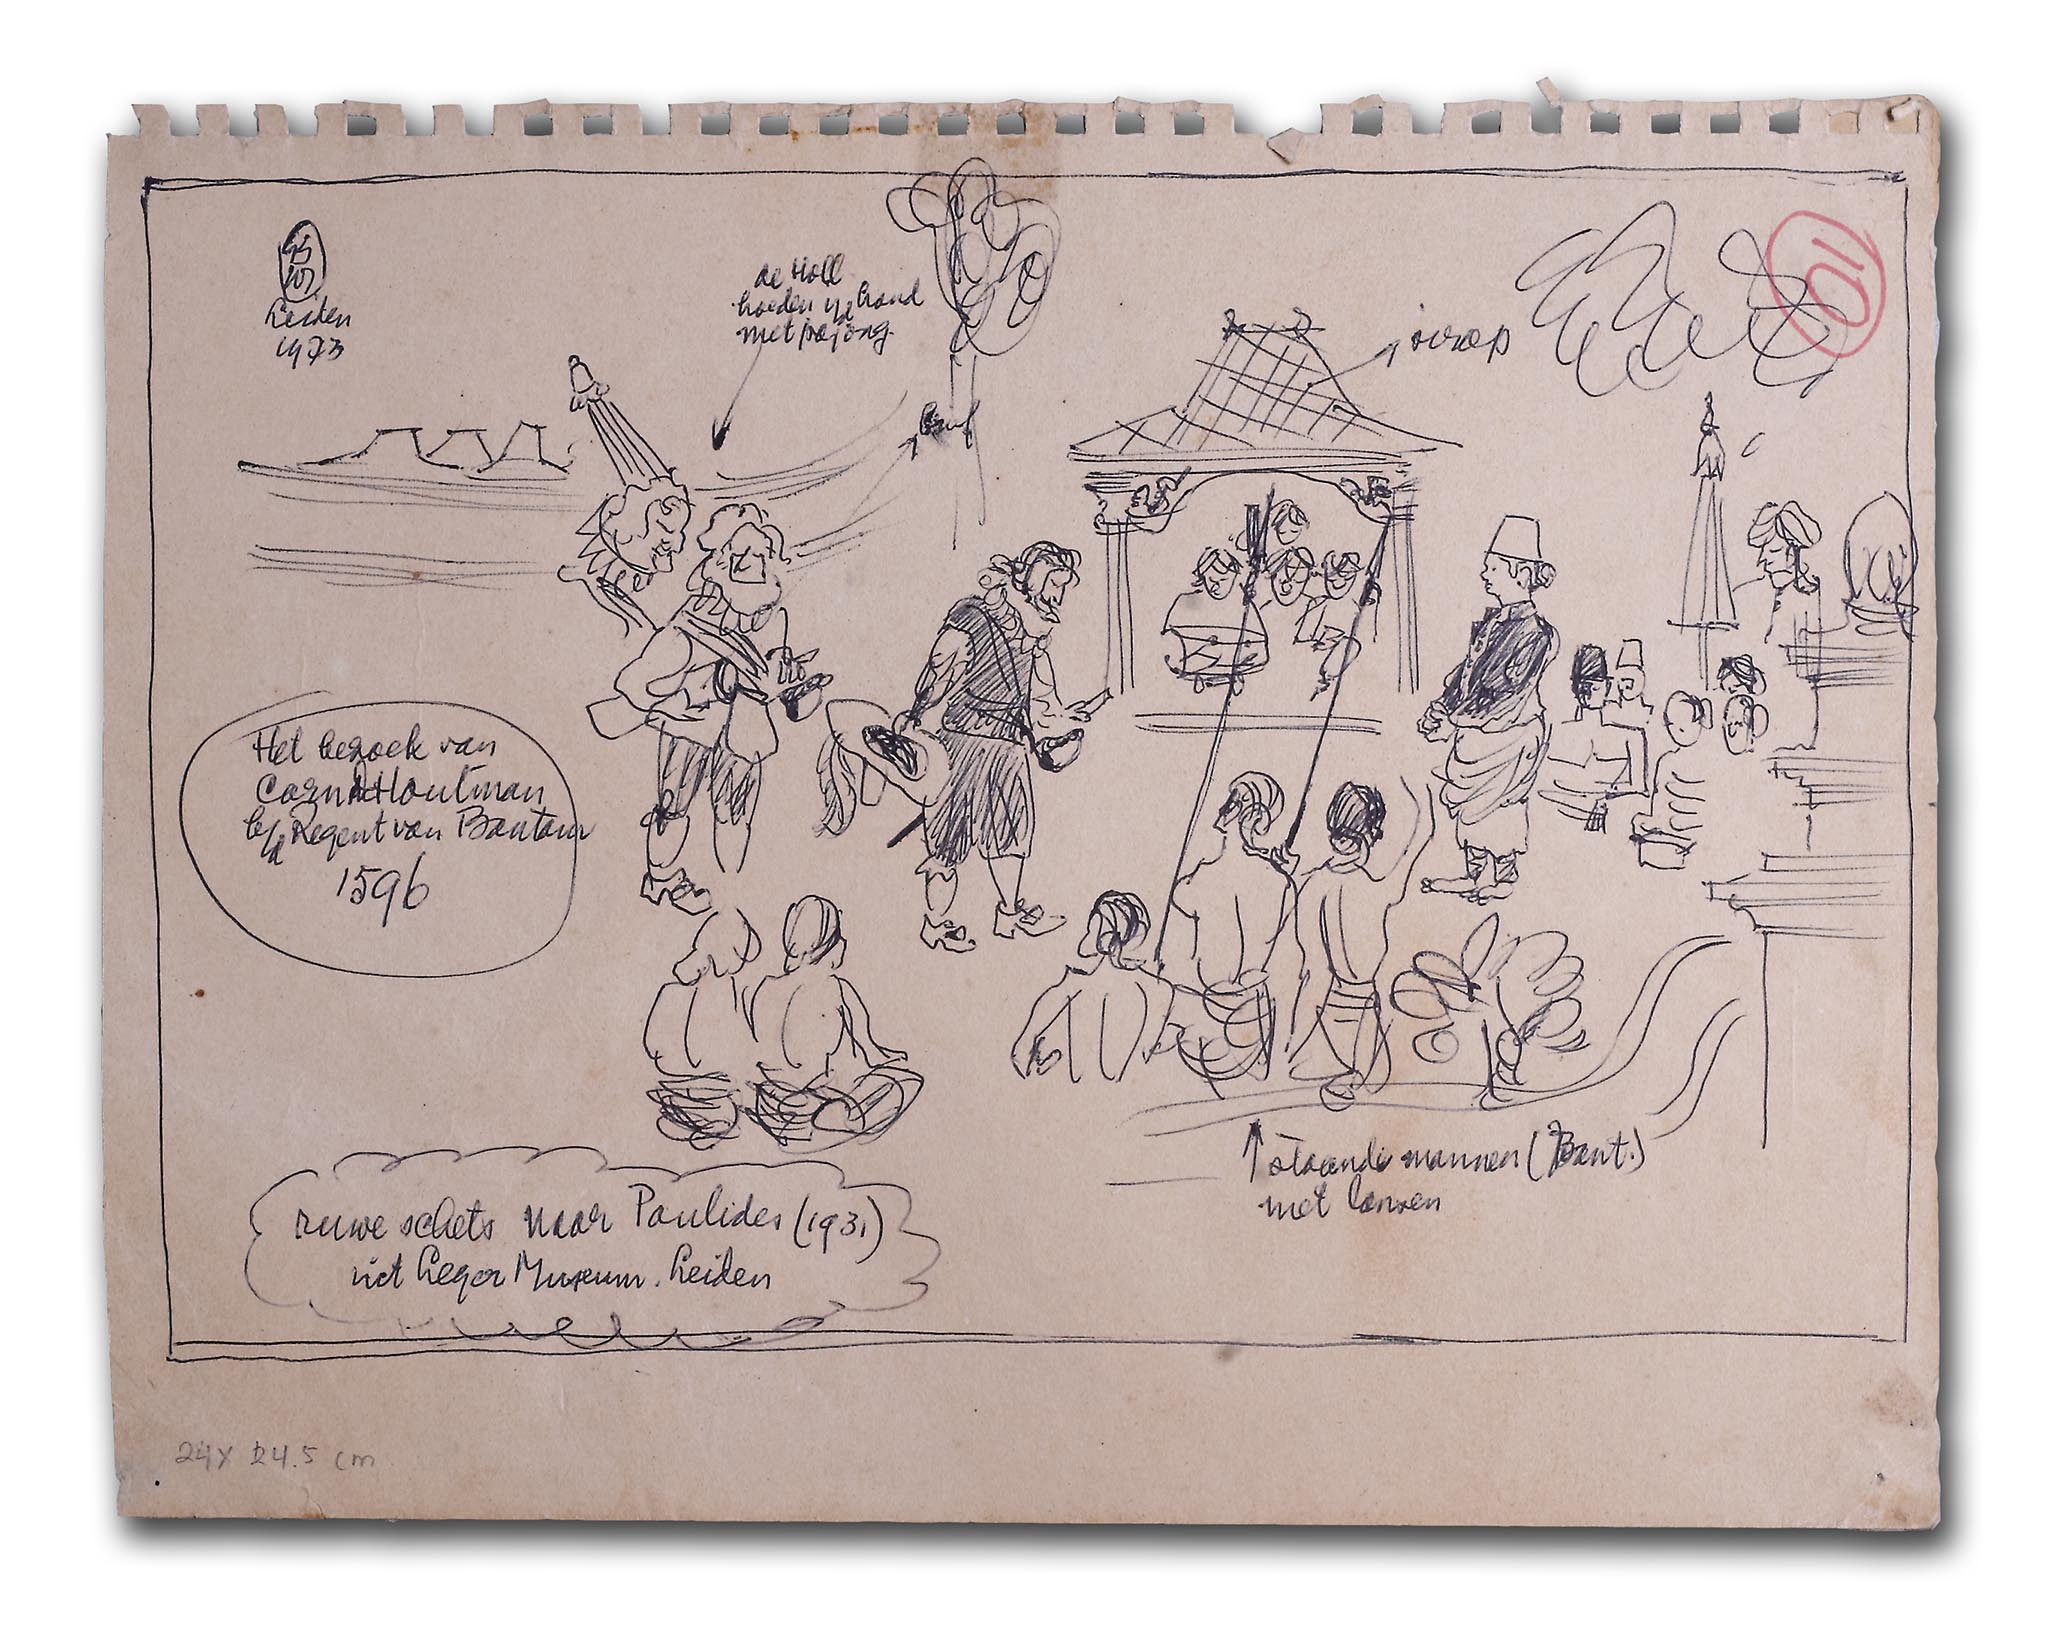 Leiden
1973
de Holl
hoeden i/d hand
met pajong
101
Het bezoek van
Corn. d. Houtman
b/d Regent van Bantam
1596
ruwe schets naar Paulides (1931)
uit Leger Museum. Leiden
staande mannen (Bant.)
met lansen
24 x 24.5 cm